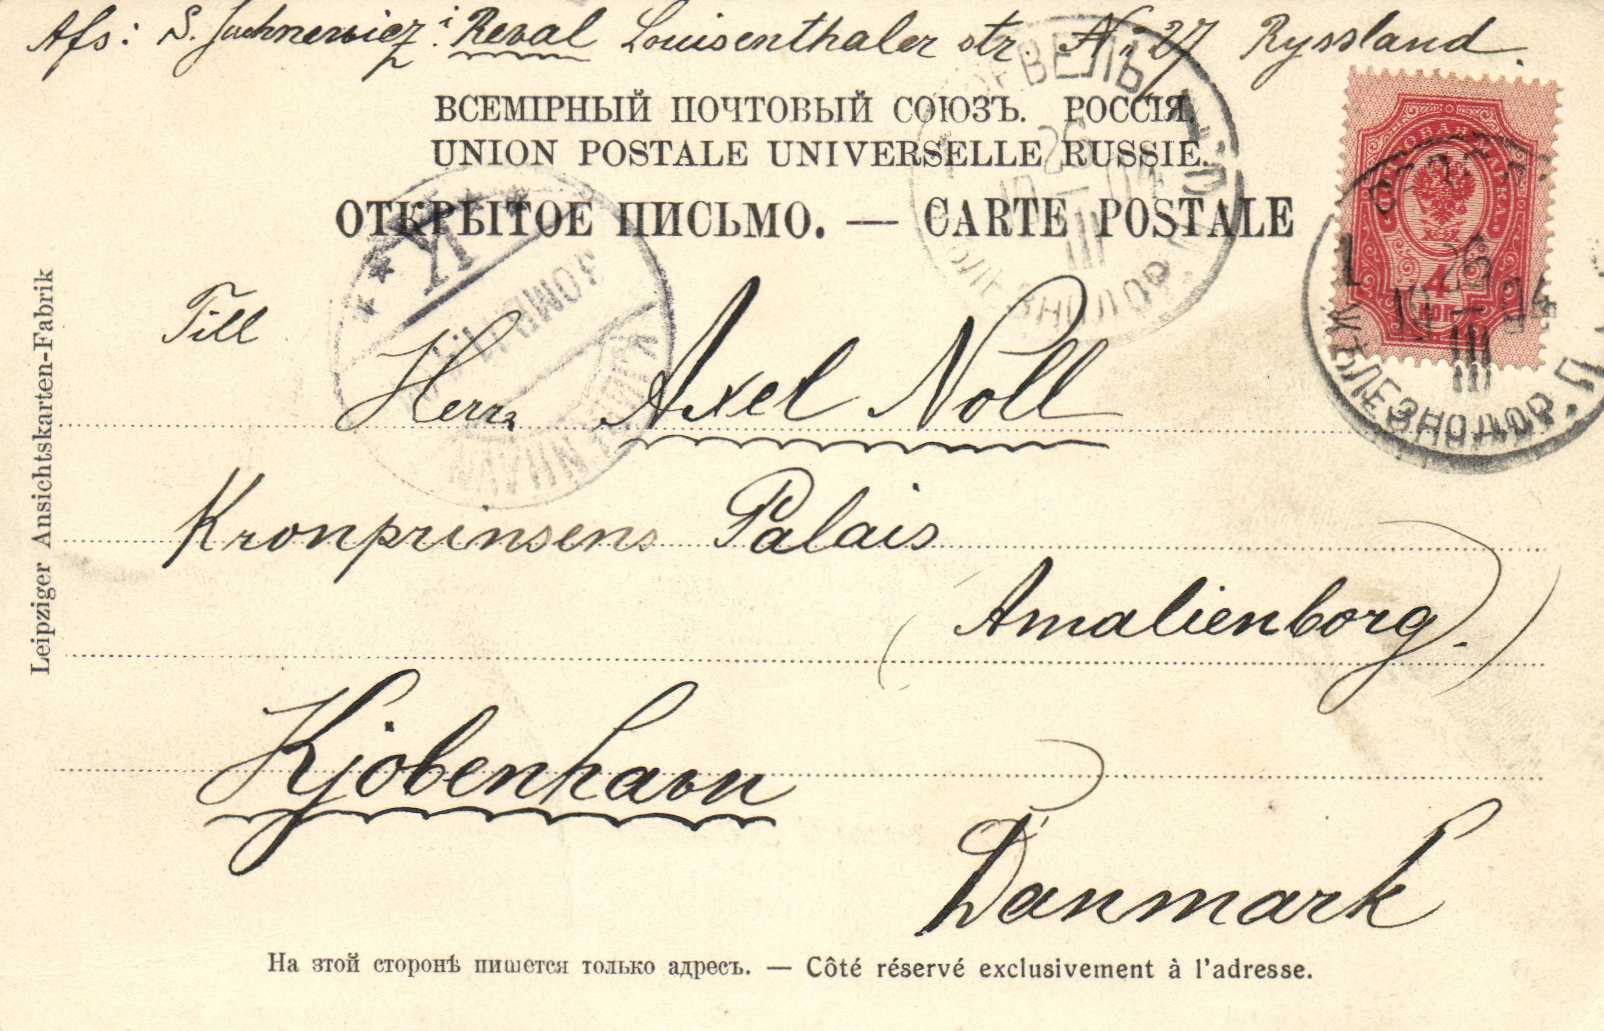 Afs: S. Juchnewicz i Reval Louisenthaler str. N: 27 Ryssland.
ВСЕМІРНЫЙ ПОЧТОВЫЙ СОЮЗЪ. РОССІЯ.
UNION POSTALE UNIVERSELLE RUSSIE.
ОТКРЫТОЕ ПИСЬМО. — CARTE POSTALE
Till
Herr Axel Noll
Kronprinsens Palais
(Amalienborg.)
Kjöbenhavn
Danmark
На этой сторонѣ пишется только адресъ. — Côté réservé exclusivement à l'adresse.
Leipziger Ansichtskarten-Fabrik
РЕВЕЛЬ
26
III
26
III
ЖЕЛЕЗНОДОР. П.
K